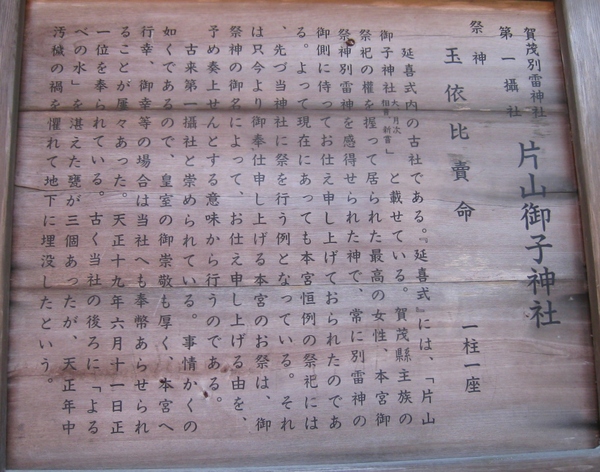 賀茂別雷神社
第一攝社
片山御子神社
祭神
玉依比賣命
一柱一座
延喜式内の古社である。『延喜式』には、「片山
御子神社 大 月次
相嘗 新嘗」と載せている。賀茂縣主族の
祭祀の權を握って居られた最高の女性、本宮御
祭神別雷神を感得せられた神で、常に別雷神の
御側に侍ってお仕え申し上げておられたのであ
る。よって現在にあっても本宮恒例の祭祀には
、先づ当神社に祭を行う例となっている。それ
は只今より御奉仕申し上げる本宮のお祭は、御
祭神の御名によって、お仕え申し上げる由を、
予め奏上せんとする意味から行うのである。
古来第一攝社と崇められている。事情かくの
如くであるので、皇室の御崇敬も厚く、本宮へ
行幸、御幸等の場合は当社へも奉幣あらせられ
ることが屢々あった。天正十九年六月十一日正
一位を奉られている。古く当社の後ろに「よる
べの水」を湛えた甕が三個あったが、天正年中
汚穢の禍を懼れて地下に埋没したという。